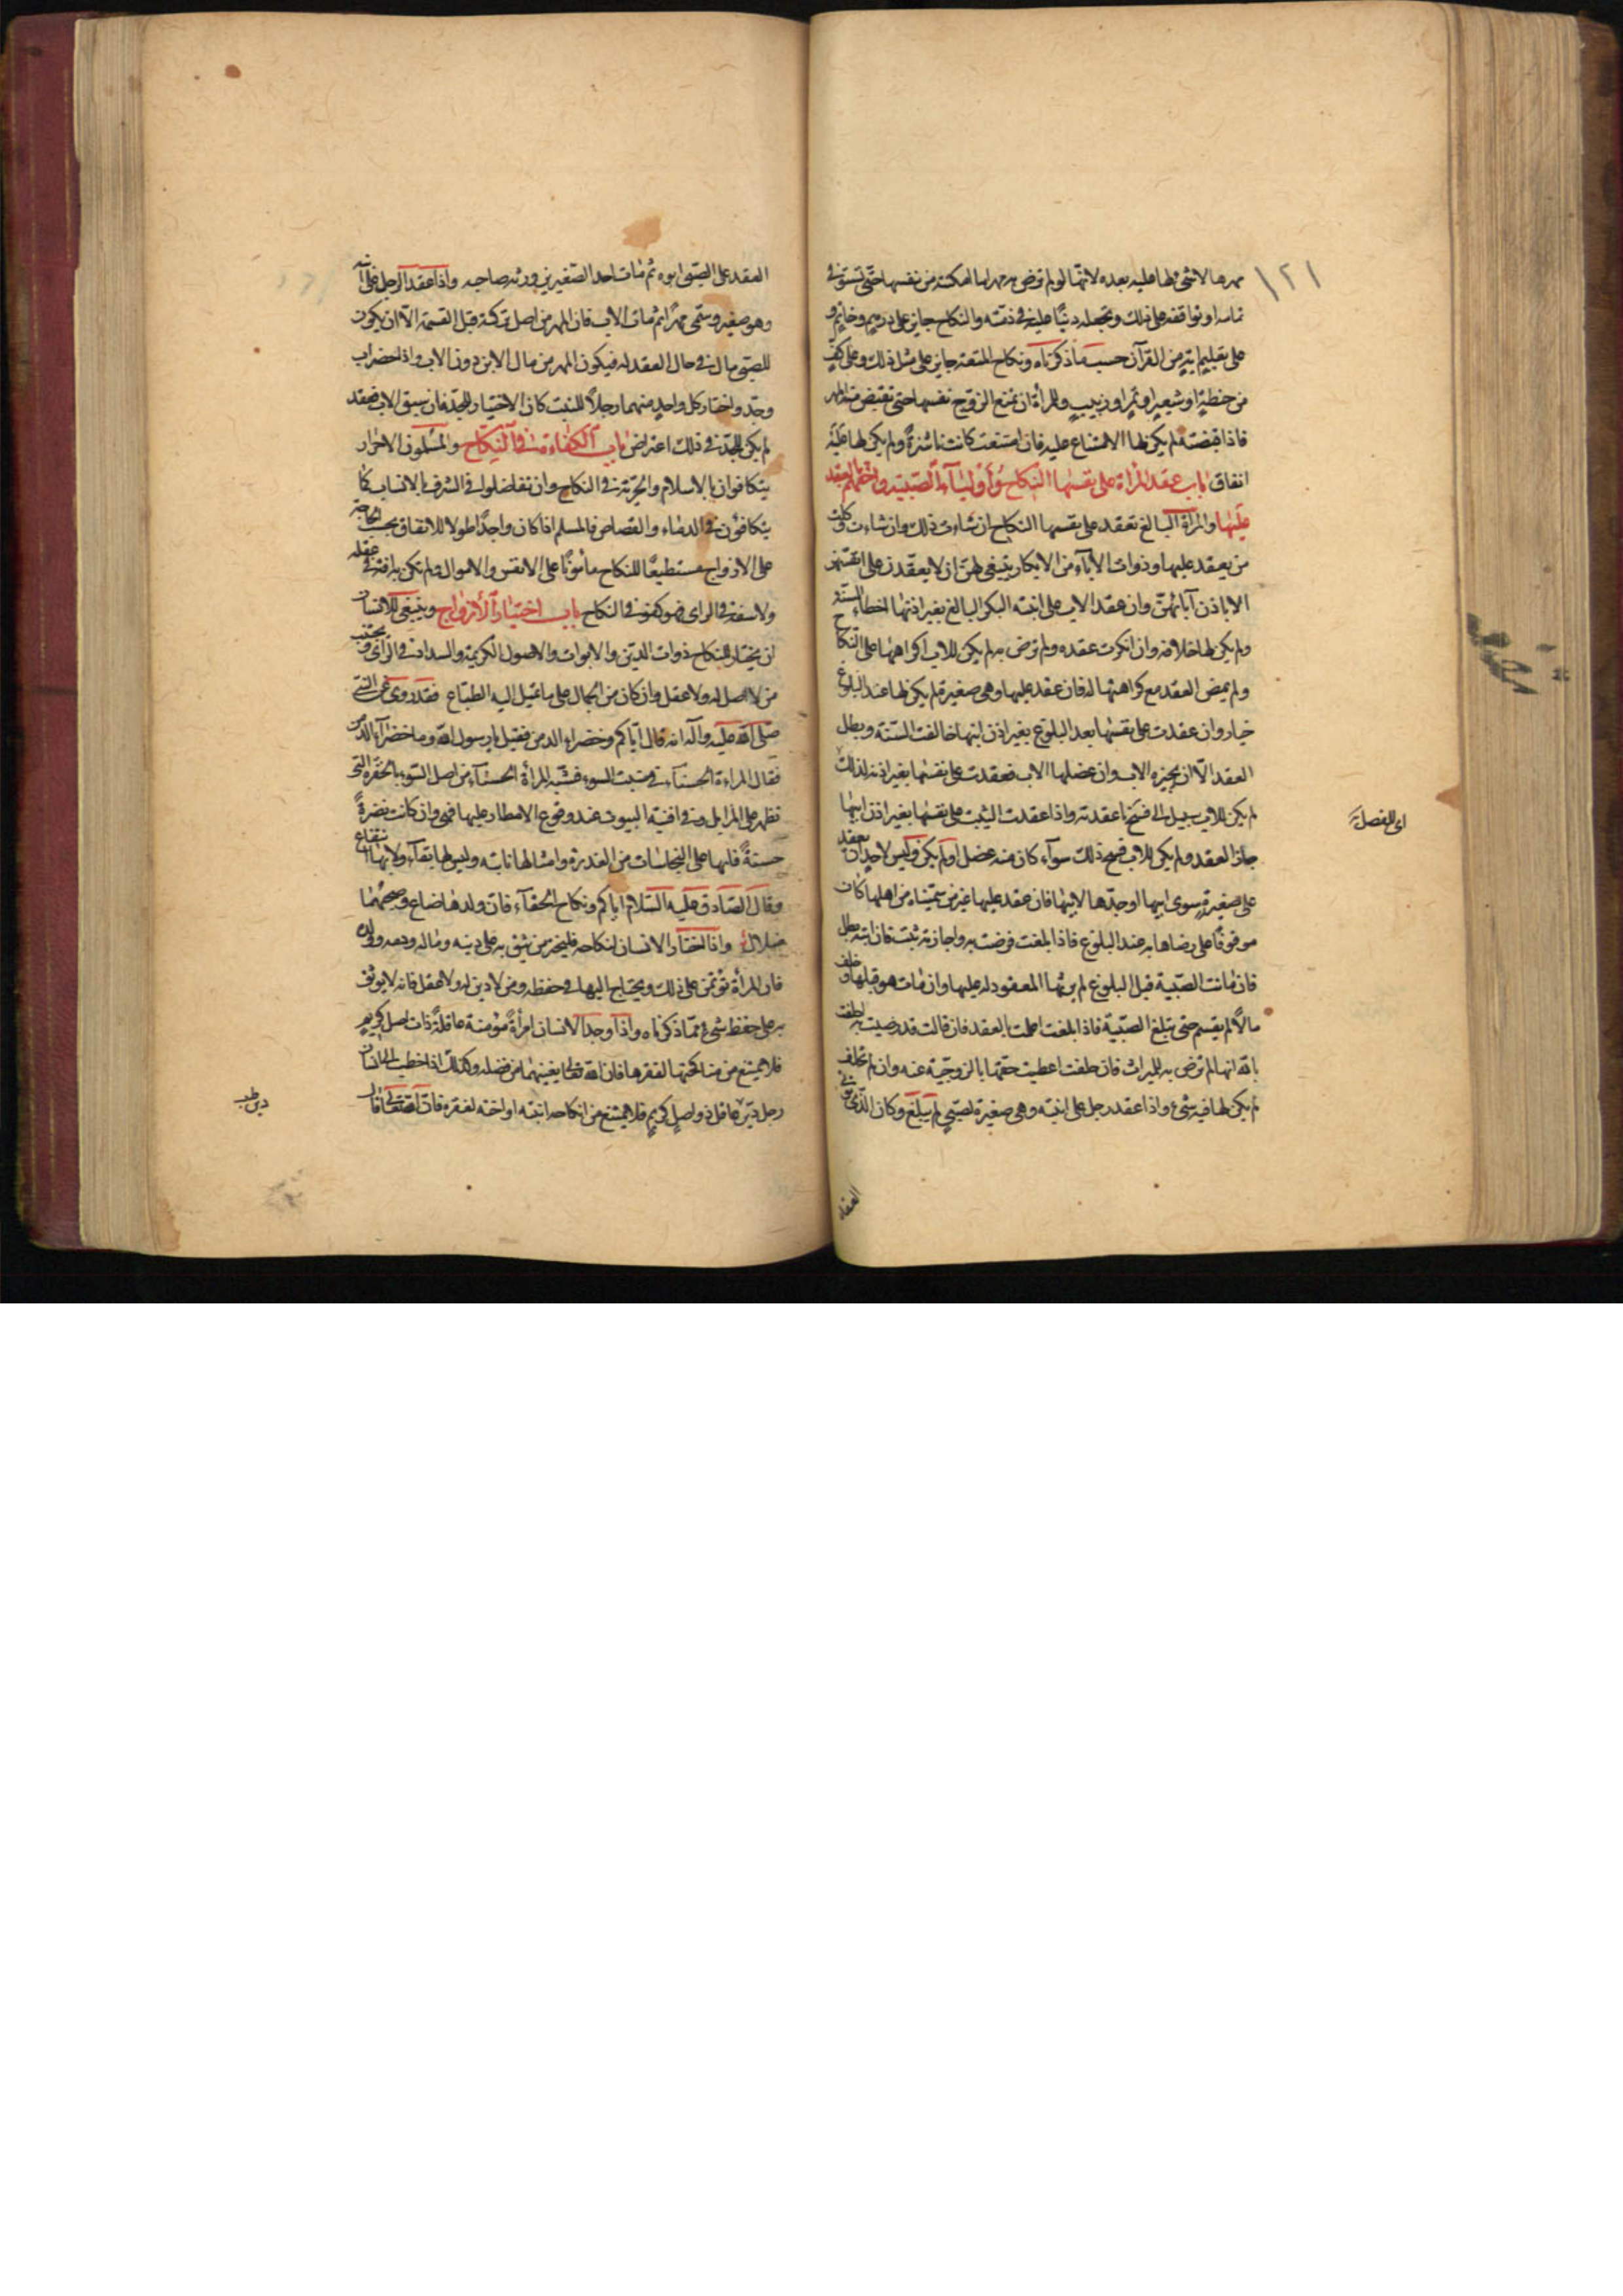 ١٢١
مهرها لا شئ لها عليه بعده لانها لو لم ترض به مهرا لما امكنته من نفسها حتى تستوفى
تمامه او توافقه على ذلك وتجعله دينًا عليه فى ذمته والنكاح جايز على درهم وخاتم و
على تعليم آية من القرآن حسب ما ذكرناه ونكاح المتعة جايز على مثل ذلك وعلى كفٍ
من حنطةٍ او شعيرٍ او تمرٍ او زبيبٍ وللمرأة ان تمنع الزوج نفسها حتى تقبض منه المهر
فاذا قبضته لم يكن لها الامتناع عليه فان امتنعت كانت ناشزةً ولم يكن لها عليه
انفاق باب عقد المرأة على نفسها النكاح واولياء الصبية واحقهم بالعقد
عليها والمرأة البالغ تعقد على نفسها النكاح ان شاءت ذلك وان شاءت وكلت
من يعقد عليها وذوات الآباء من الابكار ينبغى لهن ان لا يعقدن على انفسهن
الا باذن آبائهن وان عقد الاب على ابنته البكر البالغ بغير اذنها اخطاء السنة و
ولم يكن لها خلافه وان انكرت عقده ولم ترض به لم يكن للاب اكراهها على النكاح
ولم يمض العقد مع كراهتها له فان عقد عليها وهى صغيرة لم يكن لها عند البلوغ
خيار وان عقدت على نفسها بعد البلوغ بغير اذن ابيها خالفت السنة وبطل
العقد الا ان يجيزه الاب وان عضلها الاب فعقدت على نفسها بغير اذنه لذلك
لم يكن للاب سبيل الى فسخ ما عقدته واذا عقدت الثيب على نفسها بغير اذن ابيها
اى للفصلة
جاز العقد ولم يكن للاب فسخ ذلك سوآء كان منه عضل او لم يكن وليس لاحد ان يعقد
على صغيرةٍ سوى ابيها او جدها لابيها فان عقد عليها غير من سميناه من اهلها كان
موقوفًا على رضاها به عند البلوغ فاذا بلغت فرضت به واجازته ثبت فان ابته بطل
فان ماتت الصبية قبل البلوغ لم يرثها المعقود له عليها وان مات هو قبلها وخلف
مالًا لم يقسم حتى تبلغ الصبية فاذا بلغت اعلمت بالعقد فان قالت قد رضيت به احلفت
بالله انها لم ترض به للميراث فان حلفت اعطيت حقها بالزوجية عنه وان لم تحلف
لم يكن لها فيه شىء واذا عقد رجل على ابنته وهى صغيرة لصبيٍ لم يبلغ وكان الذى
العقد
العقد على الصبى ابوه ثم مات احد الصغيرين ورثه صاحبه واذا عقد الرجل على ابنه
وهو صغير وسمى مهرًا ثم مات الاب فان المهر من اصل تركته قبل القسمة الا ان يكون
للصبى مال فى حال العقد له فيكون المهر من مال الابن دون الاب واذا حضر اب
وجد واختار كل واحدٍ منهما رجلًا للبنت كان الاختيار للجد فان سبق الاب فعقد
لم يكن للجد فى ذلك اعتراض باب الكفاءة فى النكاح والمسلمون الاحرار
يتكافؤن بالاسلام والحرية فى النكاح وان تفاضلوا فى الشرف بالانساب كما
يتكافؤن فى الدماء والقصاص فالمسلم اذا كان واجدًا طولا للانفاق بحسب الحاجة
على الازواج مستطيعًا للنكاح مأمونًا على الانفس والاموال ولم تكن به افة فى عقله
ولا سفه فى الراى فهو كفو فى النكاح باب اختيار الازواج وينبغى للانسان
ان يختار للنكاح ذوات الدين والابوات والاصول الكريمة والسداد فى الراى ويجتنب
من لا اصل له ولا عقل وان كان من الجمال على ما تميل اليه الطباع فقد روى عن النبى
صلى الله عليه وآله انه قال اياكم وخضراء الدمن فقيل يا رسول الله وما خضراء الدمن
فقال المراءة الحسناء فى منبت السوء فشبه المرأة الحسناء من اصل السوء بالخضرة التى
تظهر على المزابل وفى افنية البيوت عند وقوع الامطار عليها فهى وان كانت نضرةً
حسنةً فانها على النجاسات من العذرة وامثالها نابتة وليس لها بقاء ولا بها انتفاع
وقال الصادق عليه السلام اياكم ونكاح الحمقاء فان ولدها ضياع وصحبتها
ضلال واذا اختار الانسان لنكاحه فليختر من يثق به على دينه وماله ودمه وولده
فان المرأة تؤتمن على ذلك ويحتاج اليها فى حفظه ومن لا دين له ولا عقل فانه لا يوثق
به على حفظ شىء مما ذكرناه واذا وجد الانسان امرأةً مؤمنة عاقلةً ذات اصل كريم
فلا يمتنع من مناكحتها لفقرها فان الله تعالى يغنيهما من فضله وكذلك اذا خطب الى الانسان
رجل دين عاقل ذو اصلٍ كريم فلا يمتنع من انكاحه ابنته او اخته لفقره فان الله تعالى قال